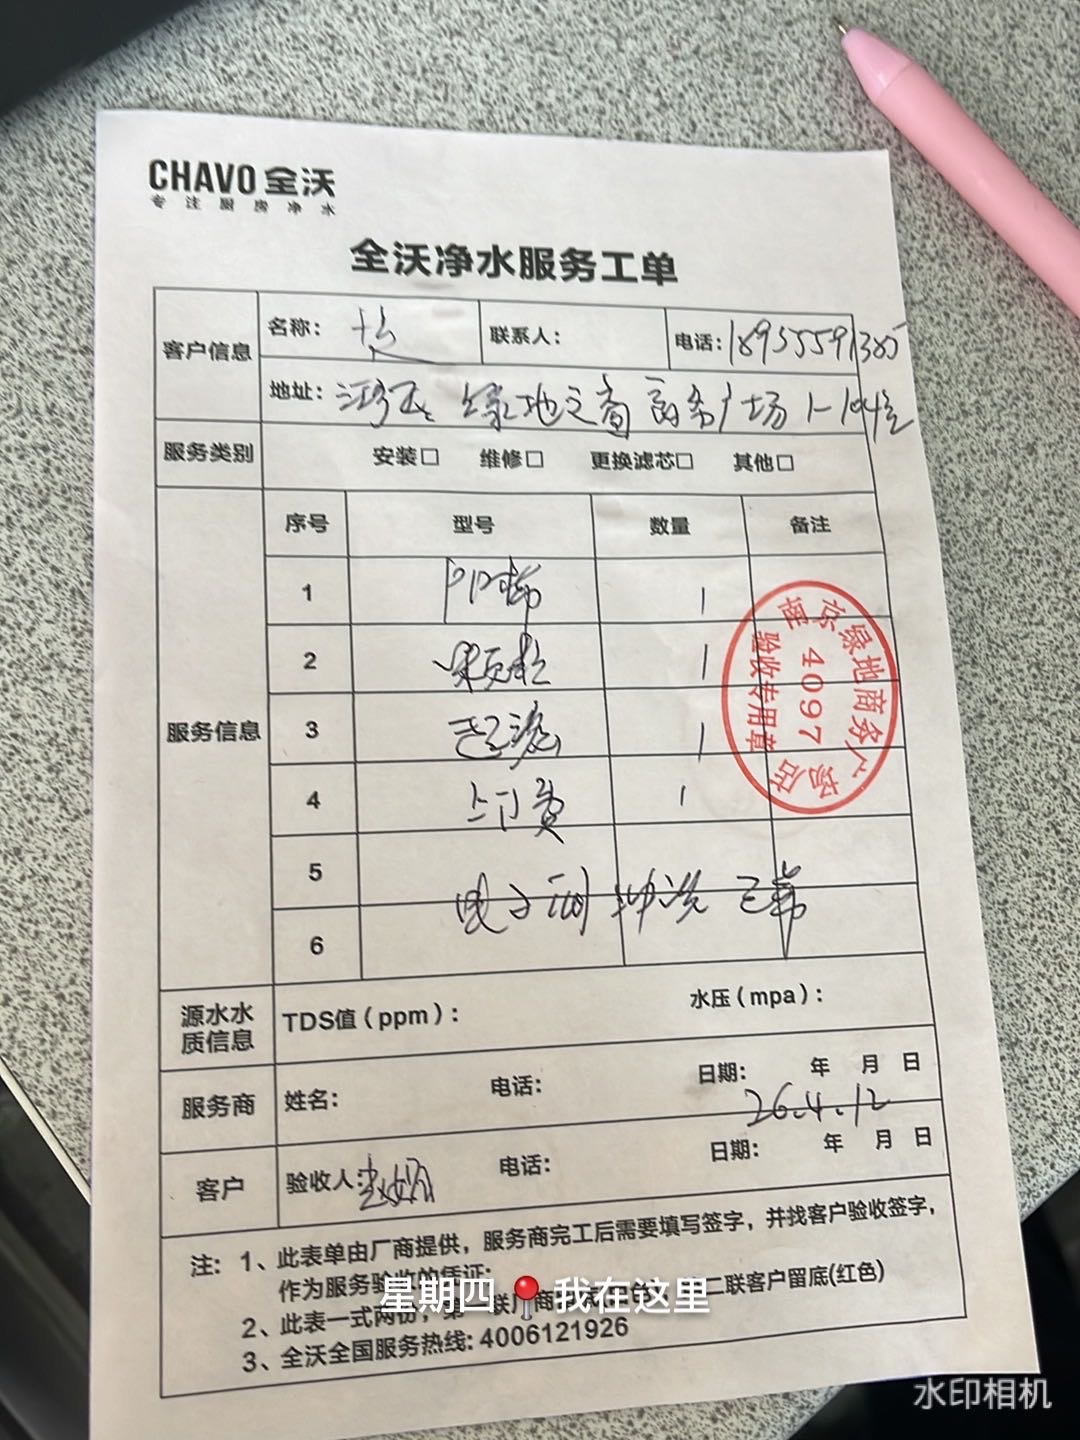 CHAVO 全沃
专注厨房净水
全沃净水服务工单
客户信息
名称：
联系人：
电话：18955591385
地址： 绿地之窗商务广场 1-104
服务类别
安装□ 维修□ 更换滤芯□ 其他□
服务信息
序号 型号 数量 备注
1 PP棉 1
2 颗粒 1
3 超滤 1
4 上门费 1
5
6
电子阀 冲洗 正常
南京绿地商务广场店
4097
验收专用章
源水水质信息
TDS值（ppm）：
水压（mpa）：
服务商
姓名：
电话：
日期： 年 月 日
26.4.12
客户
验收人：
电话：
日期： 年 月 日
注：1、此表单由厂商提供，服务商完工后需要填写签字，并找客户验收签字，
作为服务验收的凭证；
2、此表一式两份，第一联厂商 二联客户留底(红色)
3、全沃全国服务热线：4006121926
星期四📍我在这里
水印相机